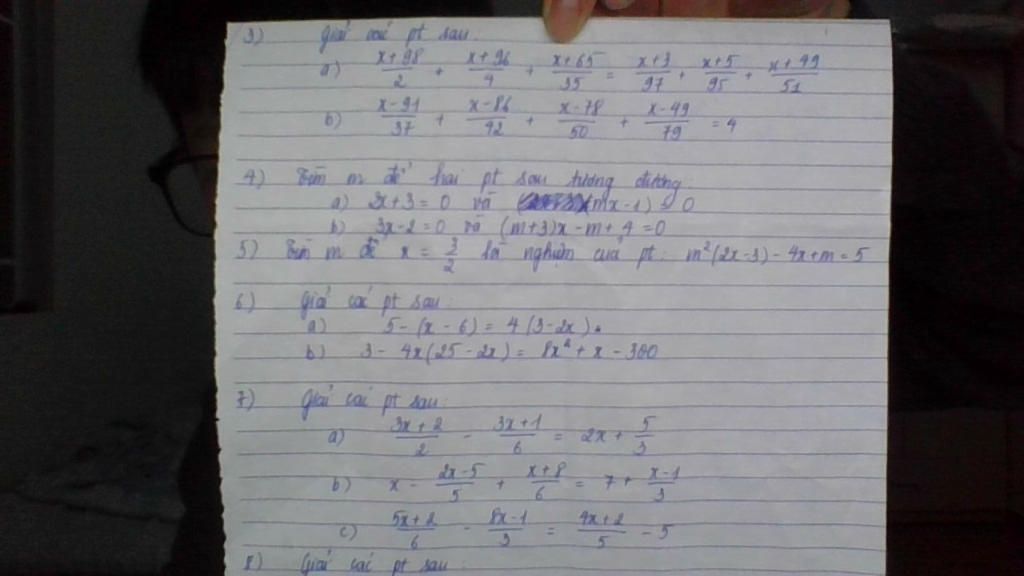 3) Giải các pt sau:
a) \frac{x+98}{2} + \frac{x+96}{4} + \frac{x+65}{35} = \frac{x+3}{97} + \frac{x+5}{95} + \frac{x+49}{51}
b) \frac{x-91}{37} + \frac{x-86}{42} + \frac{x-78}{50} + \frac{x-49}{79} = 4
4) Tìm m để hai pt sau tương đương:
a) 2x+3 = 0 và (mx-1) = 0
b) 3x-2=0 và (m+3)x-m+4=0
5) Tìm m để x = \frac{3}{2} là nghiệm của pt: m²(2x-3)-4x+m=5
6) Giải các pt sau:
a) 5-(x-6) = 4(3-2x).
b) 3-4x(25-2x) = 8x²+x-300
7) Giải các pt sau:
a) \frac{3x+2}{2} - \frac{3x+1}{6} = 2x+\frac{5}{3}
b) x - \frac{2x-5}{5} + \frac{x+8}{6} = 7 + \frac{x-1}{3}
c) \frac{5x+2}{6} - \frac{8x-1}{3} = \frac{4x+2}{5} - 5
8) Giải các pt sau: